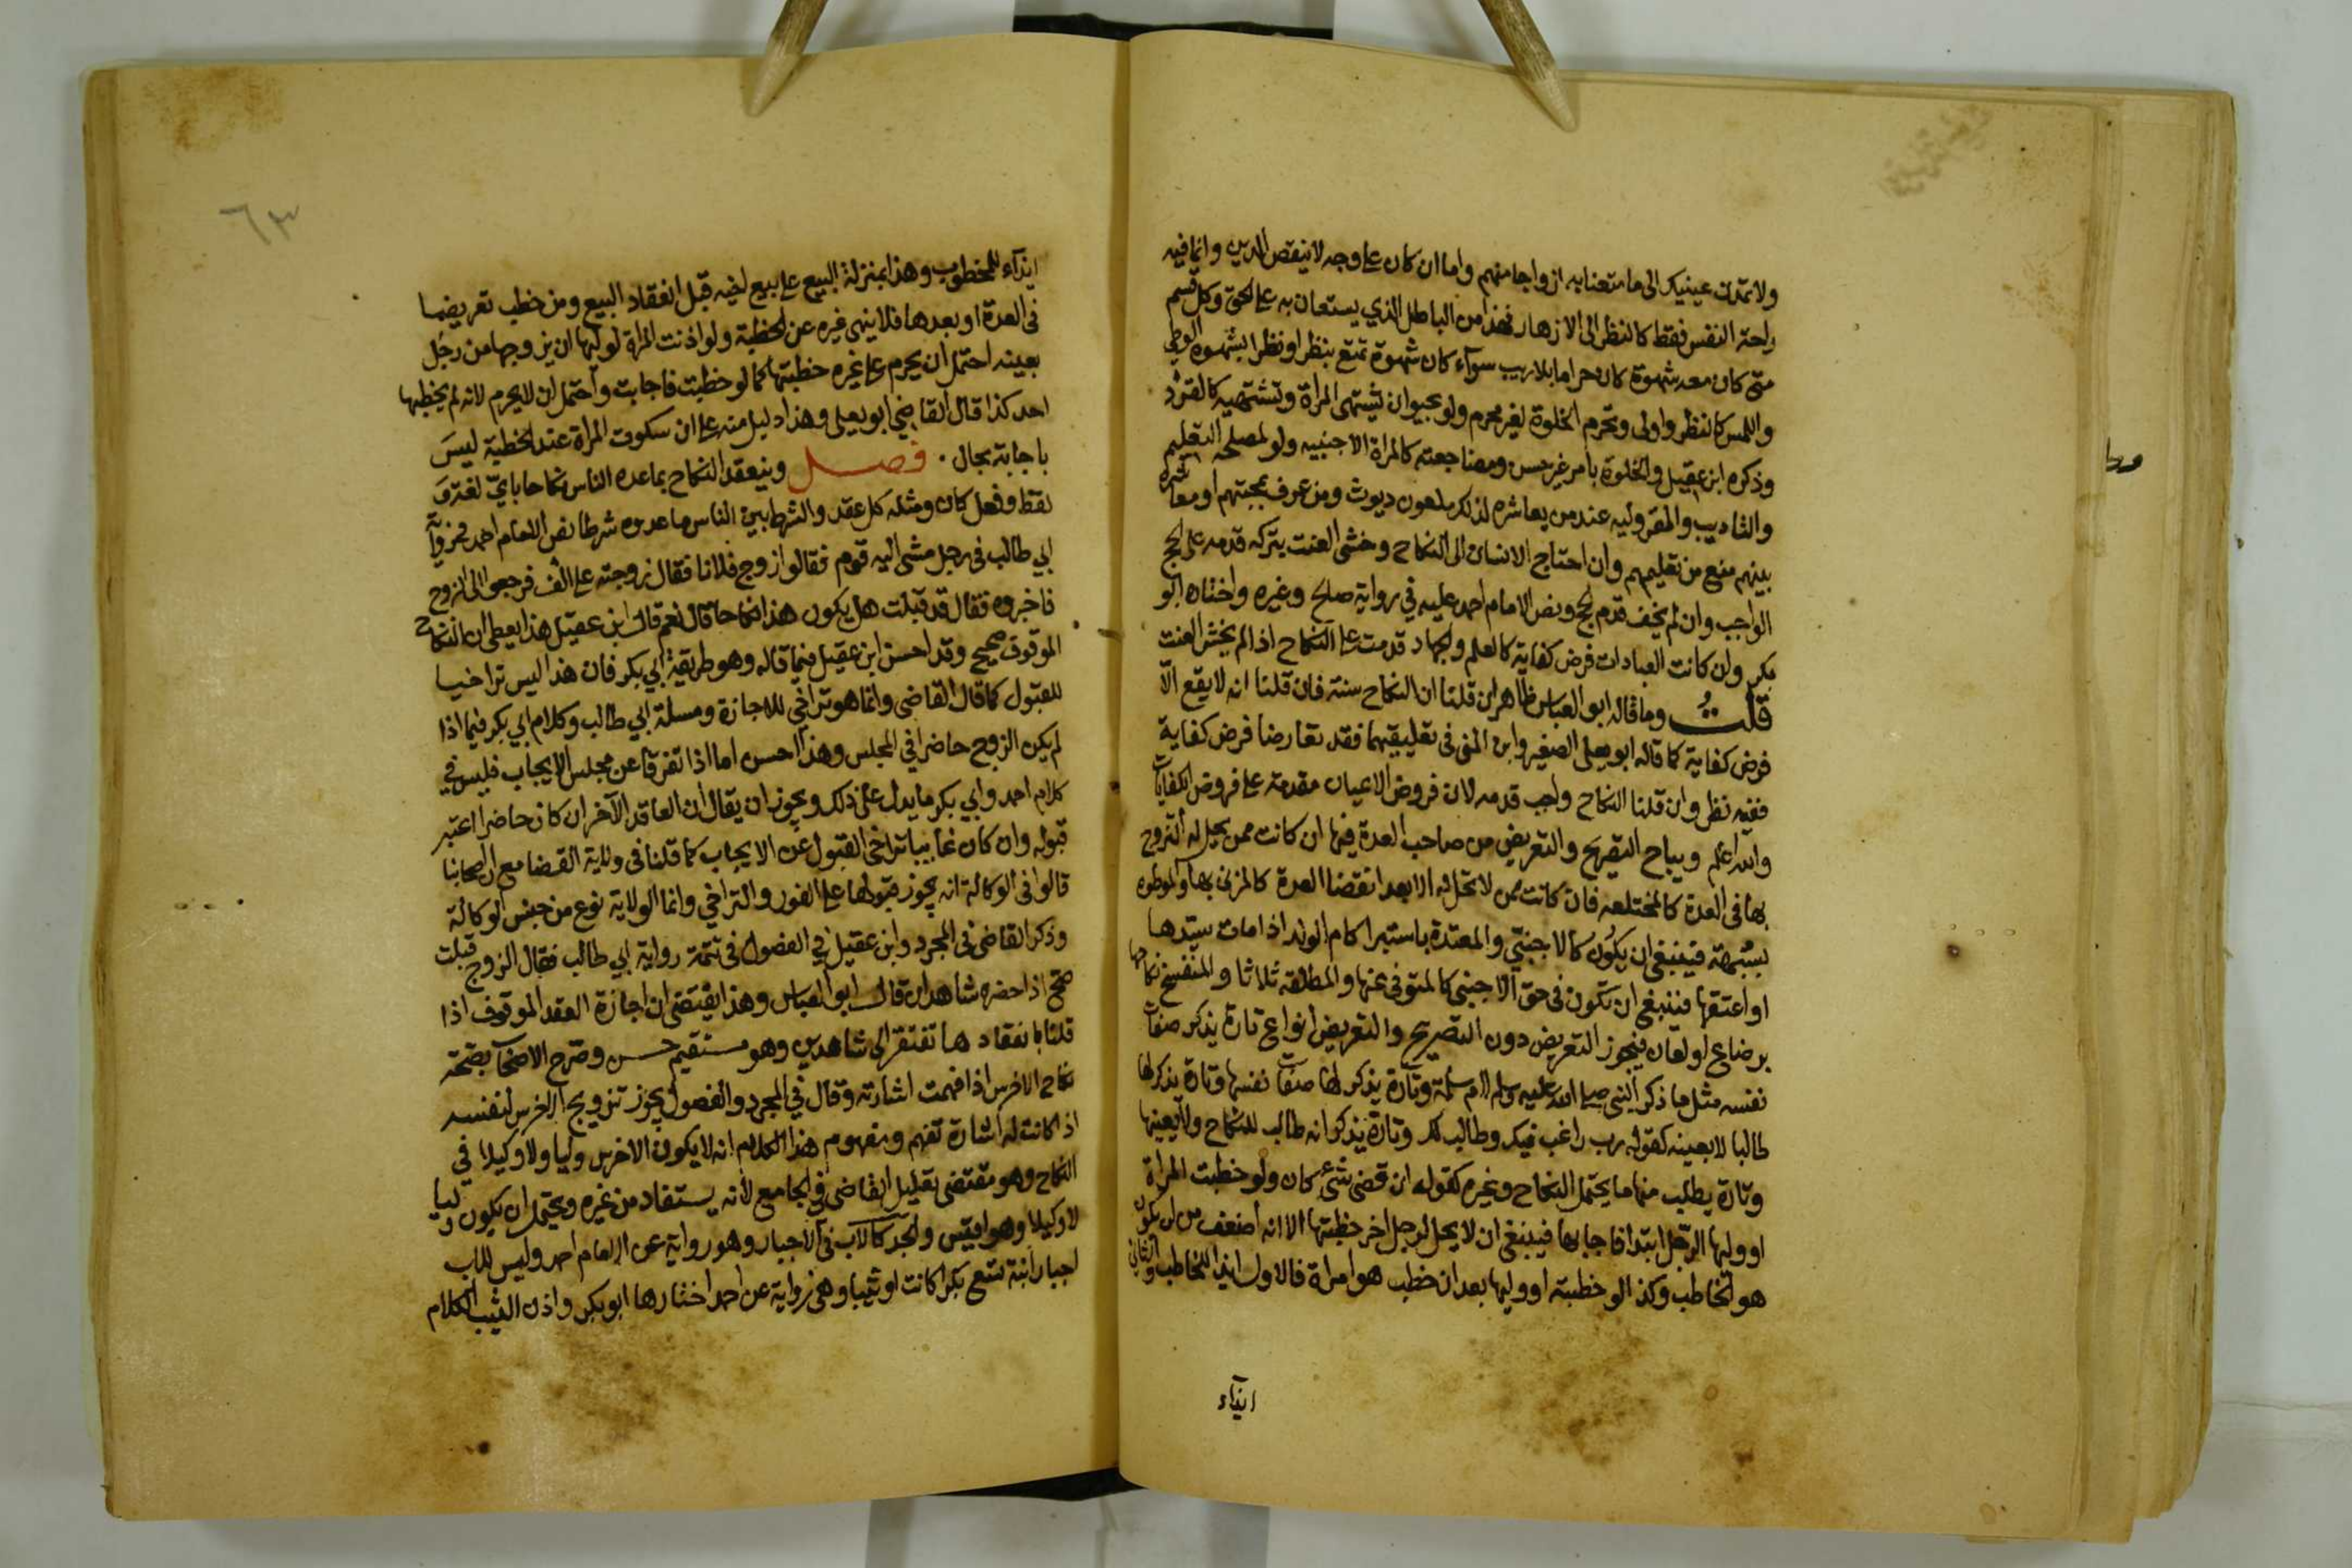 ولا تمدن عينيك الى ما متعنا به ازواجا منهم واما ان كان على وجه لا ينقص الدين وانما فيه
راحة النفس فقط كالنظر الى الازهار فهذا من الباطل الذي يستعان به على الحق وكل قسم
متى كان معه شهوة كان حراما بلا ريب سوآء كان شهوة تمتع بنظر او نظرا لشهوة الوطي
واللمس كالنظر واولى وتحرم الخلوة لغير محرم ولو بحيوان يشتهي المراة وتشتهيه كالقرد
وذكره ابن عقيل والخلوة بامرد غير حسن ومضاجعته كالمراة الاجنبيه ولو لمصلحة التعليم
والتاديب والمقر وليه عند من يعاشره لذلك ملعون ديوث ومن عرف بمحبتهم او معاشرة
بينهم منع من تعليمهم وان احتاج الانسان الى النكاح وخشى العنت بتركه قدمه على الحج
الواجب وان لم يخف قدم الحج ونص الامام احمد عليه في رواية صالح وغيره واختاره ابو
بكر وان كانت العبادات فرض كفاية كالعلم والجهاد قدمت على النكاح اذا لم يخش العنت
قلت وما قاله ابو العباس ظاهر ان قلنا ان النكاح سنة فان قلنا انه لا يقع الا
فرض كفاية كما قاله ابو يعلى الصغير وابن المنى في تعليقهما فقد تعارضا فرض كفاية
ففيه نظر وان قلنا النكاح واجب قدمه لان فروض الاعيان مقدمة على فروض الكفايات
والله اعلم ويباح التصريح والتعريض من صاحب العدة فيها ان كانت ممن يحل له التزوج
بها في العدة كالمختلعه فان كانت ممن لا تحل له الا بعد انقضا العدة كالمزني بها والموطوه
بشبهة فينبغي ان يكون كالاجنبي والمعتدة باستبرا كام الولد اذا مات سيدها
او اعتقها فينبغي ان تكون في حق الاجنبي كالمتوفى عنها والمطلقه ثلاثا والمنفسخ نكاحها
برضاع او لعان فيجوز التعريض دون التصريح والتعريض انواع تارة يذكر صفات
نفسه مثل ما ذكر النبي صلى الله عليه وسلم لام سلمة وتارة يذكر لها صفات نفسها وتارة يذكر لها
طالبا لا بعينه كقوله رب راغب فيك وطالب لك وتارة يذكر انه طالب للنكاح ولا يعينها
وتارة يطلب منها ما يحتمل النكاح وغيره كقوله ان قضى شئ كان ولو خطبت المراة
او وليها الرجل ابتدا فاجابها فينبغي ان لا يحل لرجل اخر خطبتها الا انه اضعف من ان يكون
هو الخاطب وكذا لو خطبته او وليها بعد ان خطب هو امراة فالاول ايذا للخاطب والثاني
ايذآء
٦٣
ايذآء للمخطوب وهذا بمنزلة البيع على بيع اخيه قبل انعقاد البيع ومن خطب تعريضا
في العدة او بعدها فلا ينهى غيره عن الخطبة ولو اذنت المراة لوليها ان يزوجها من رجل
بعينه احتمل ان يحرم على غيره خطبتها كما لو خطبت فاجابت واحتمل ان لا يحرم لانه لم يخطبها
احد كذا قال القاضي ابو يعلى وهذا دليل منه على ان سكوت المراة عند الخطبة ليس
باجابة بحال . فصل وينعقد النكاح بما عده الناس نكاحا باي لغة و
لفظ وفعل كان ومثله كل عقد والشرط بين الناس ما عدوه شرطا نص الامام احمد في رواية
ابي طالب في رجل مشى اليه قوم فقالوا زوج فلانا فقال زوجته على الف فرجعوا الى الزوج
فاخبروه فقال قد قبلت هل يكون هذا نكاحا قال نعم قال ابن عقيل هذا يعطى ان النكاح
الموقوف صحيح وقد احسن ابن عقيل فيما قاله وهو طريقة ابي بكر فان هذا ليس تراخيا
للقبول كما قال القاضي وانما هو تراخي للاجازة ومسلة ابي طالب وكلام ابي بكر فيما اذا
لم يكن الزوج حاضرا في المجلس وهذا احسن اما اذا تفرقا عن مجلس الايجاب فليس في
كلام احمد وابي بكر ما يدل على ذلك ويجوز ان يقال ان العاقد الاخر ان كان حاضرا اعتبر
قبوله وان كان غايبا تراخى القبول عن الايجاب كما قلنا في ولاية القضا مع ان اصحابنا
قالوا في الوكالة انه يجوز قبولها على الفور والتراخي وانما الولاية نوع من جنس الوكالة
وذكر القاضي في المجرد وابن عقيل في الفصول في تتمة رواية ابي طالب فقال الزوج قبلت
صح اذا حضره شاهدان قال ابو العباس وهذا يقتضى ان اجازة العقد الموقوف اذا
قلنا بانعقادها تفتقر الى شاهدين وهو مستقيم حسن وصرح الاصحاب بصحة
نكاح الاخرس اذا فهمت اشارته وقال في المجرد والفصول يجوز تزويج الاخرس لنفسه
اذا كانت له اشارة تفهم ومفهوم هذا الكلام انه لا يكون الاخرس وليا ولا وكيلا في
النكاح وهو مقتضى تعليل القاضي في الجامع لانه يستفاد من غيره ويحتمل ان يكون وليا
لا وكيلا وهو اقيس والجد كالاب في الاجبار وهو رواية عن الامام احمد وليس للاب
اجبار ابنة تسع بكرا كانت او ثيبا وهي رواية عن احمد اختارها ابو بكر واذن الثيب الكلام